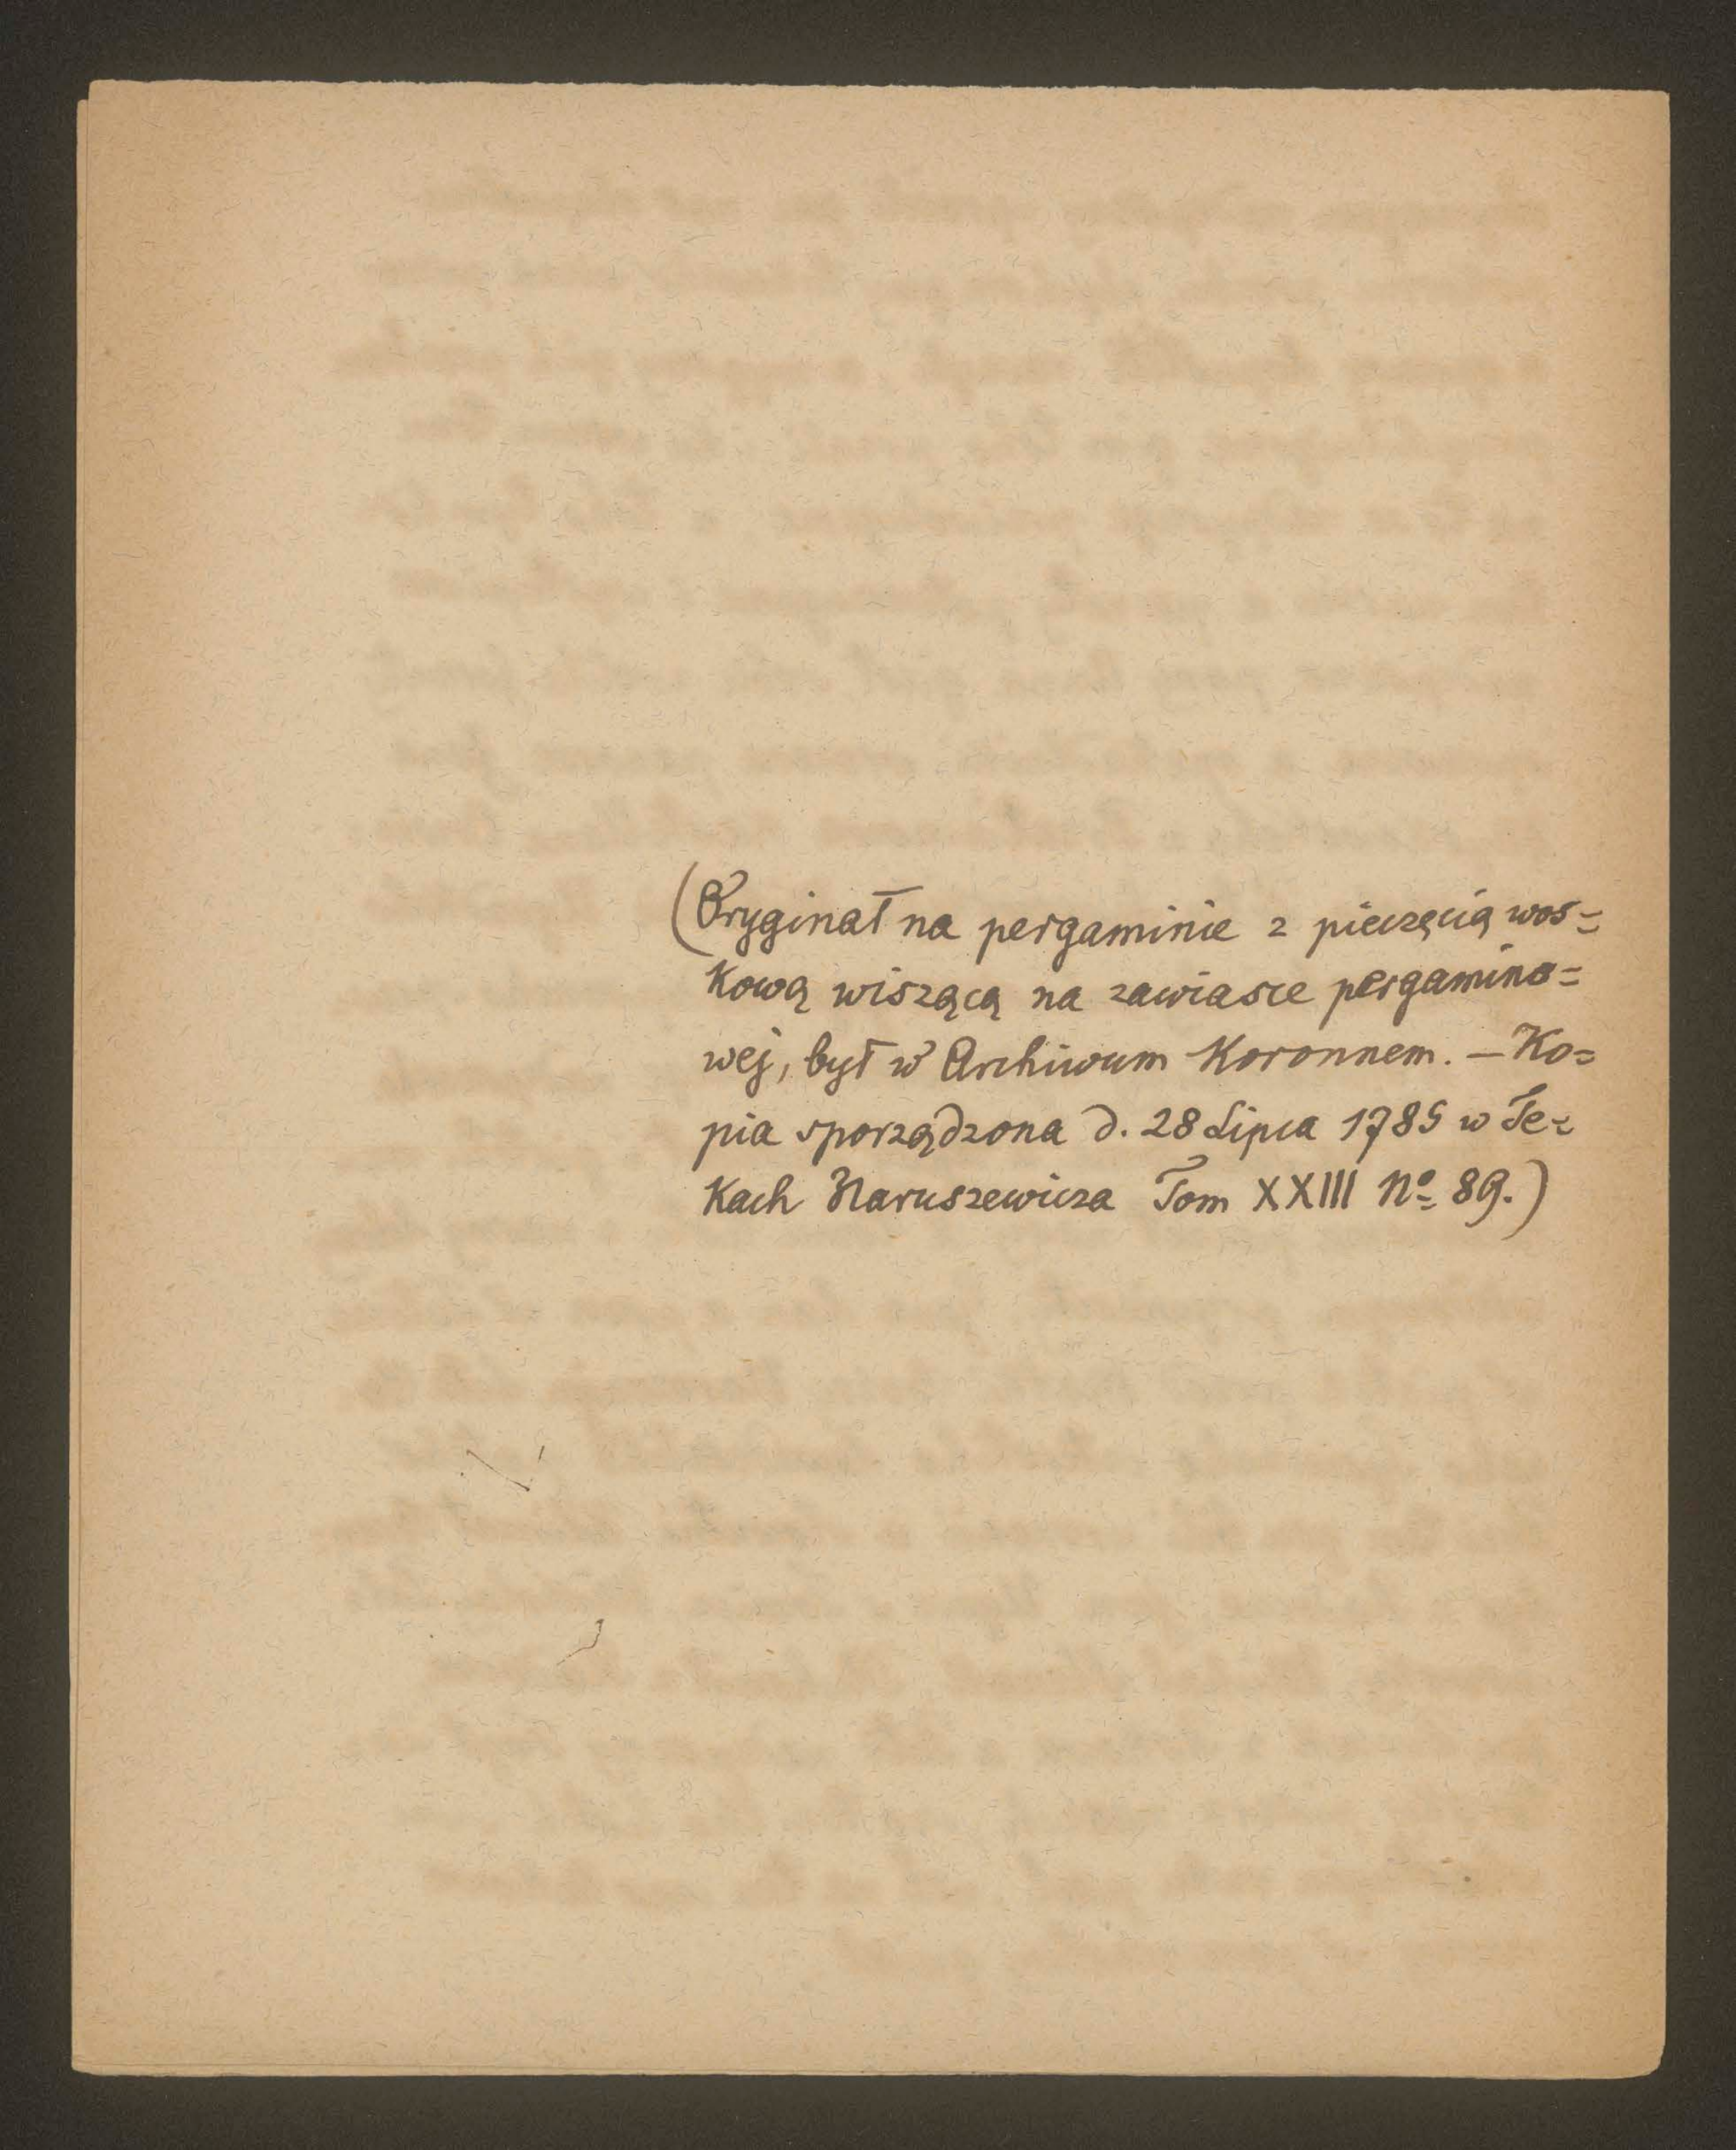 (Oryginał na pergaminie z pieczęcią wos=
kową wiszącą na zawiasce pergamino=
wej, był w Archiwum Koronnem. — Ko=
pia sporządzona d. 28 Lipca 1785 w Te=
kach Naruszewicza Tom XXIII No 89.)